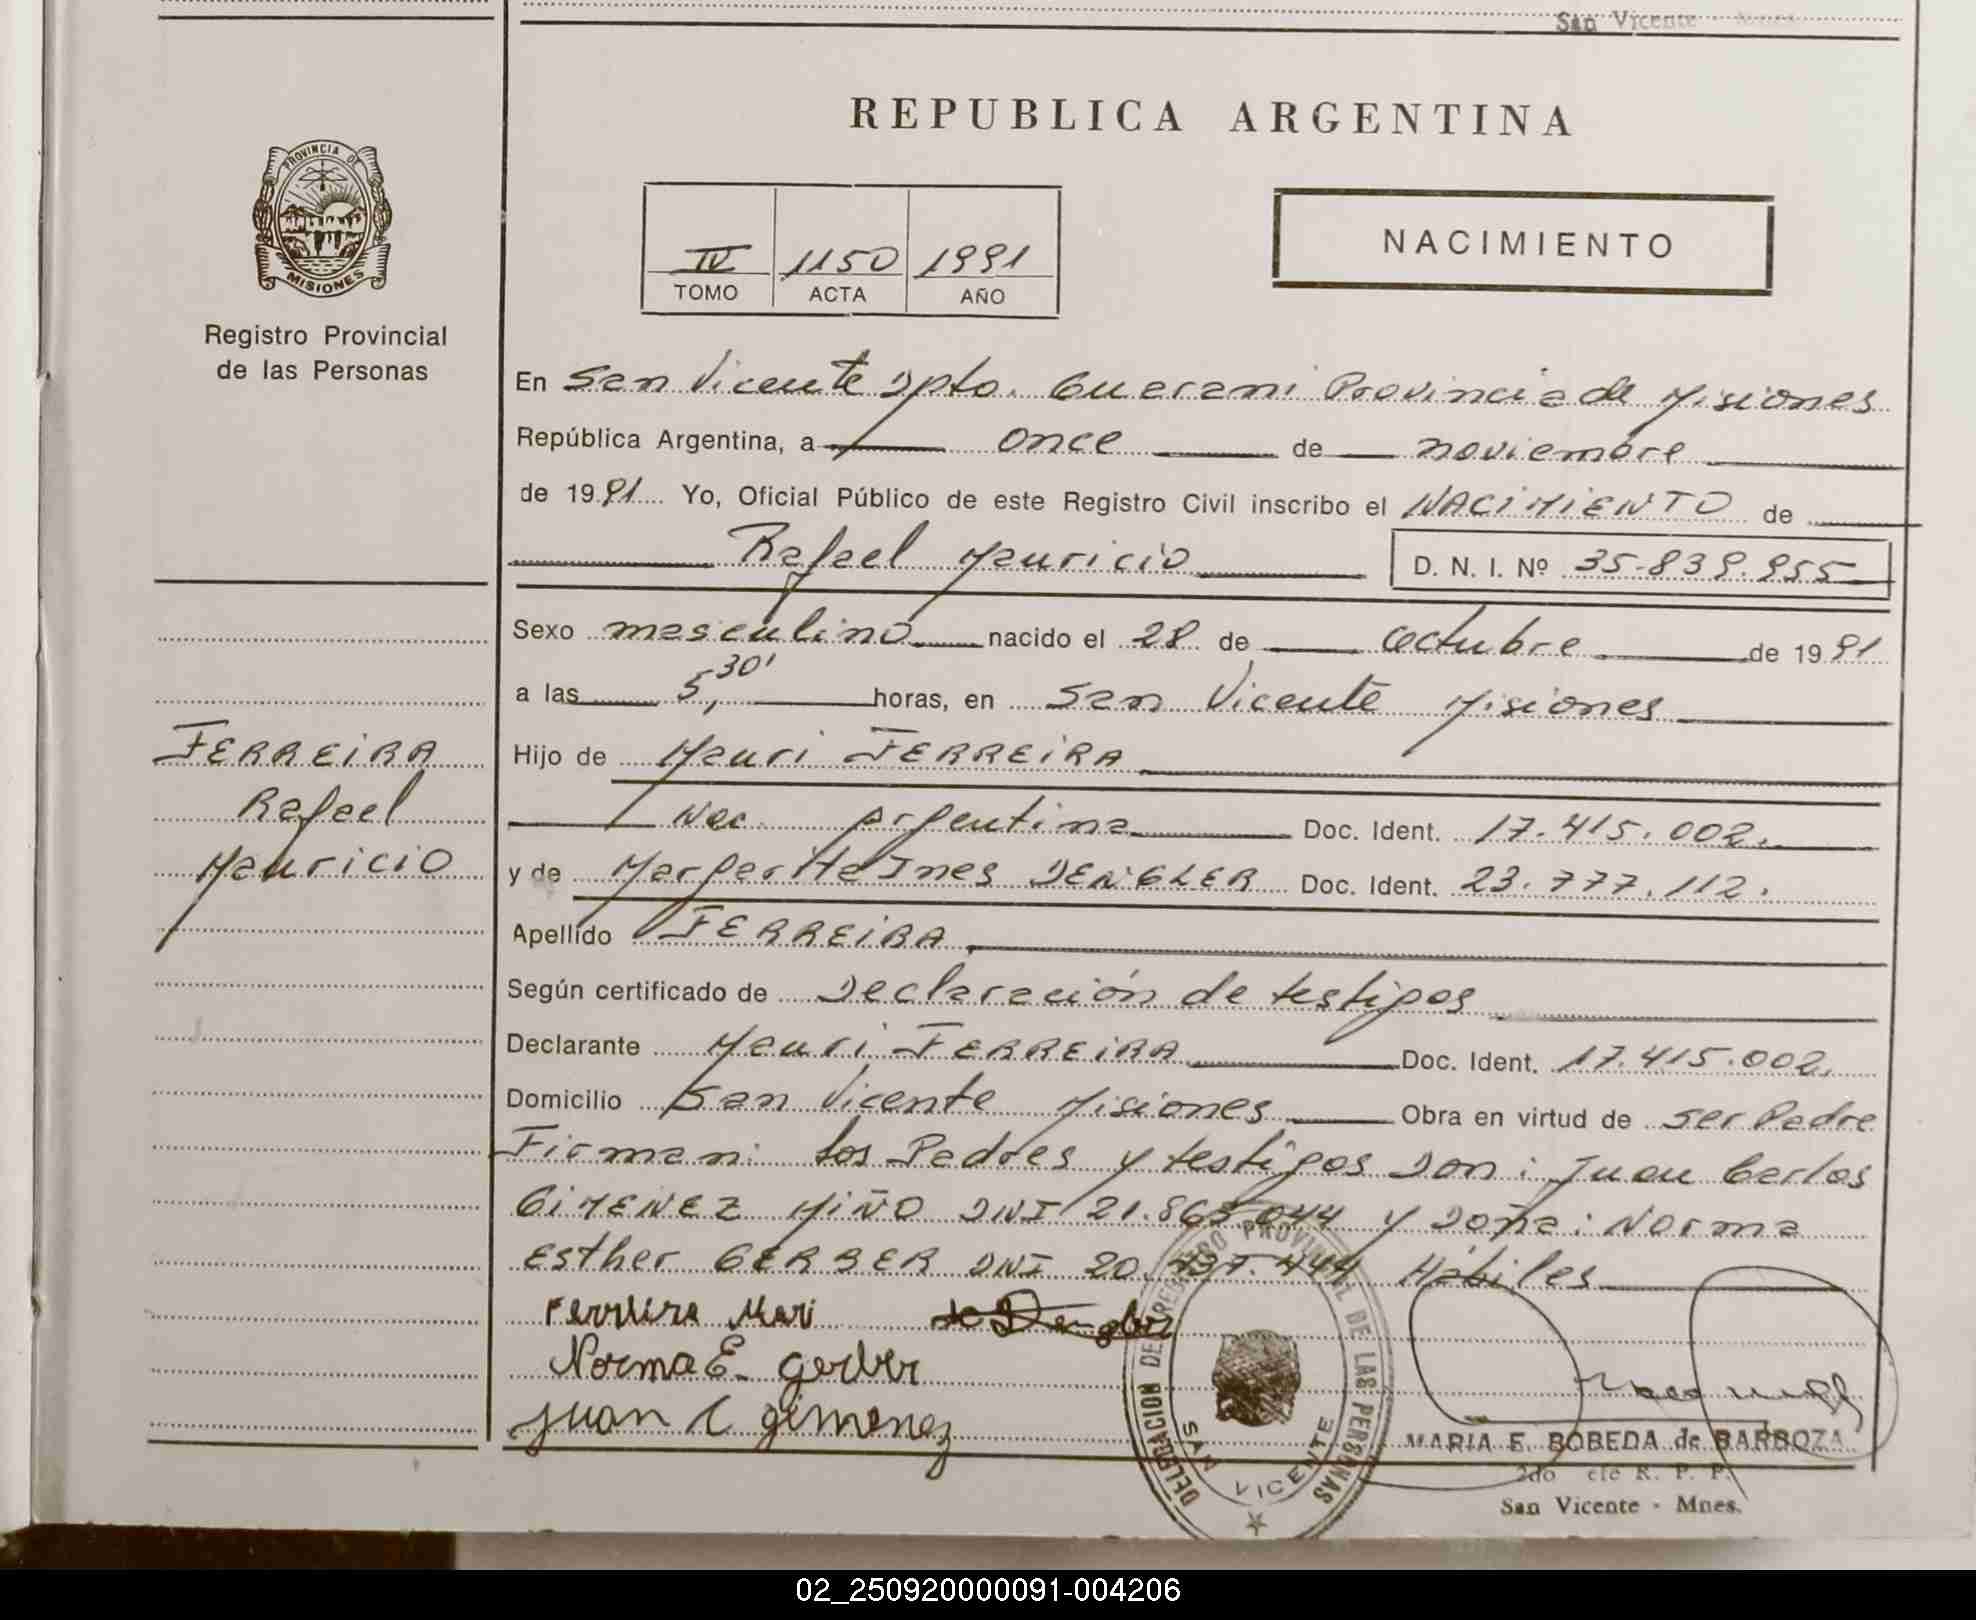 San Vicente - Mnes.
REPUBLICA ARGENTINA
PROVINCIA DE
MISIONES
Registro Provincial
de las Personas
IV 1150 1991
TOMO ACTA AÑO
NACIMIENTO
En San Vicente Dpto. Guarani Provincia de Misiones
República Argentina, a once de noviembre
de 1991 Yo, Oficial Público de este Registro Civil inscribo el NACIMIENTO de
Rafael Mauricio D. N. I. Nº 35.839.955
Sexo masculino nacido el 28 de Octubre de 1991
a las 5,30' horas, en San Vicente Misiones
FERREIRA
Rafael
Mauricio
Hijo de Mauri FERREIRA
Nac. Argentina Doc. Ident. 17.415.002.
y de Margarita Ines DENGLER Doc. Ident. 23.777.112.
Apellido FERREIRA
Según certificado de Declaración de testigos
Declarante Mauri FERREIRA Doc. Ident. 17.415.002.
Domicilio San Vicente Misiones Obra en virtud de ser Padre
Firman: Los Padres y testigos Don: Juan Carlos
GIMENEZ MIÑO DNI 21.863.044 y Doña: Norma
Esther GERBER DNI 20.737.444 Hábiles
Ferreira Mari
Norma E. Gerber
Juan C Gimenez
DELEGACION DE REGISTRO PROVINCIAL DE LAS PERSONAS
SAN VICENTE
MARIA E. BOBEDA de BARBOZA
2do R. P. P.
San Vicente - Mnes.
02_250920000091-004206